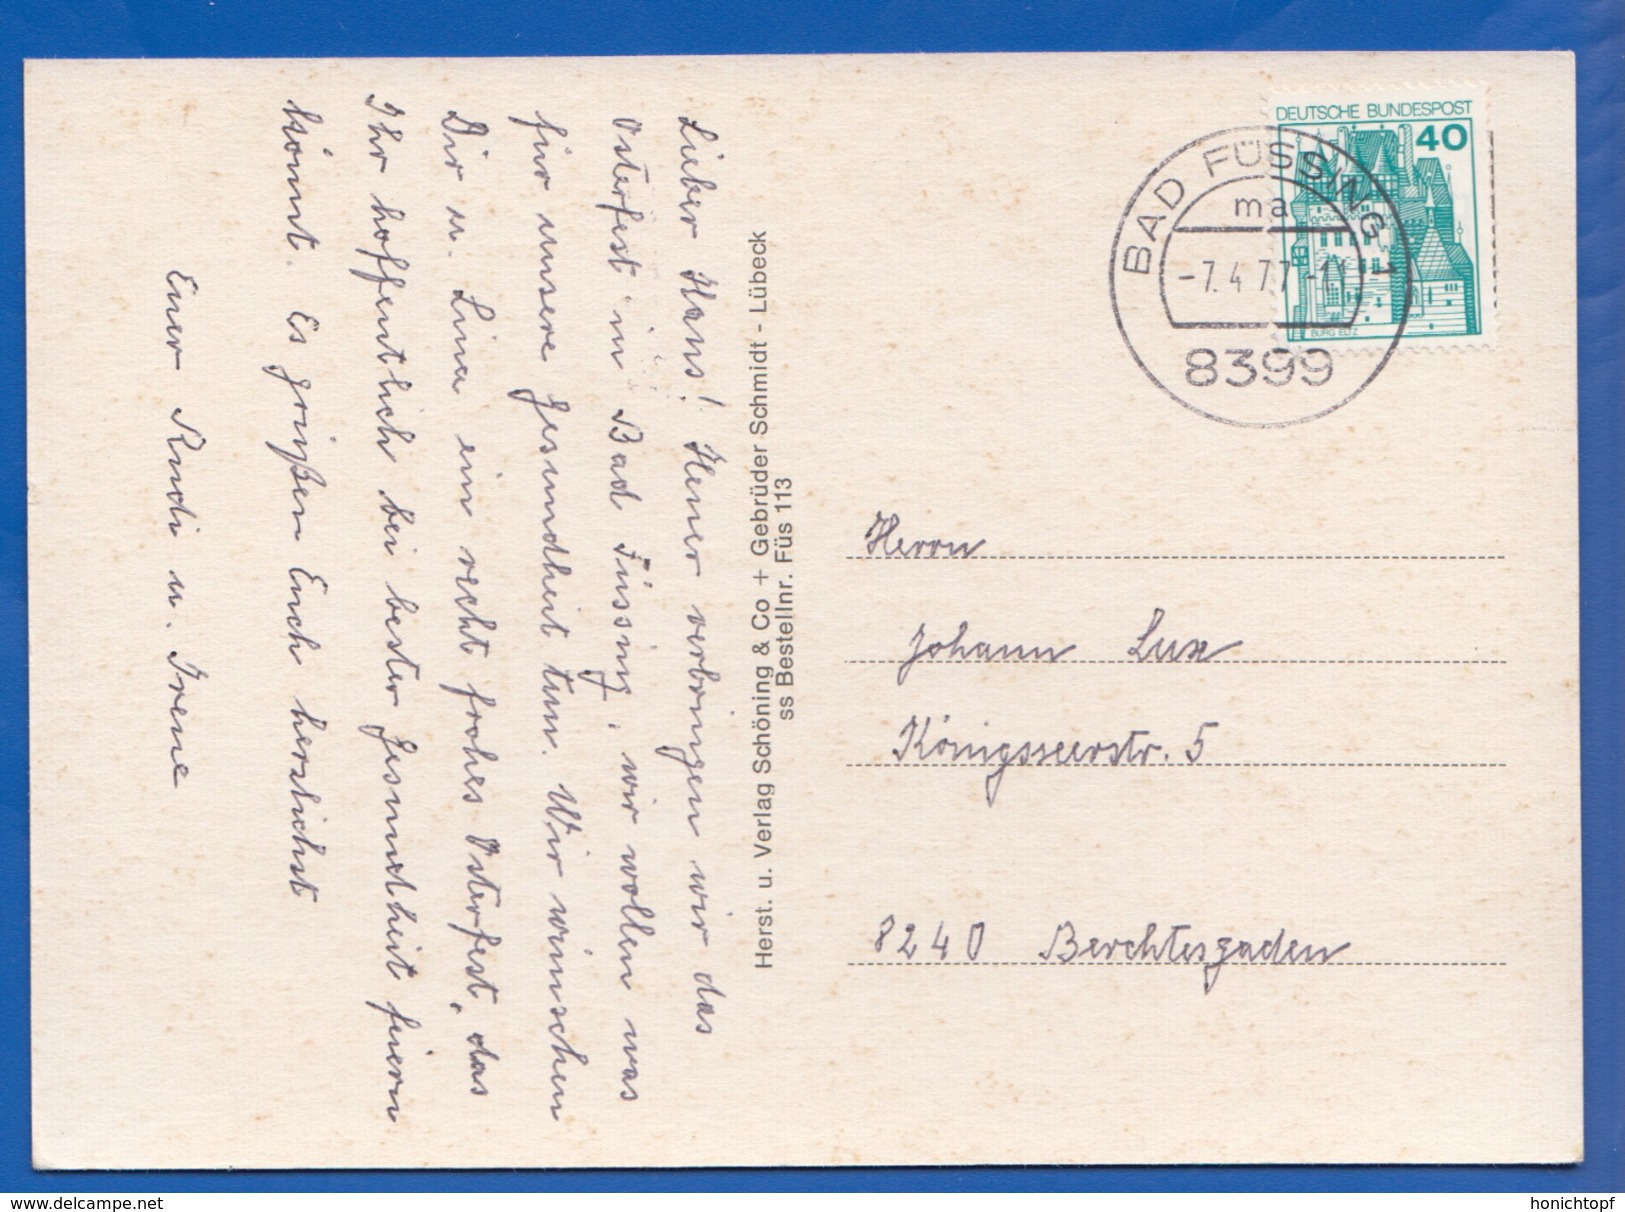 Lieber Hans! Heuer verbringen wir das
Osterfest in Bad Füssing, wir wollen was
für unsere Gesundheit tun. Wir wünschen
Dir u. Lina ein recht frohes Osterfest, das
Ihr hoffentlich bei bester Gesundheit feiern
könnt. Es grüßen Euch herzlichst
Euer Rudi u. Irene
Herst. u. Verlag Schöning & Co + Gebrüder Schmidt - Lübeck
ss Bestellnr. Füs 113
DEUTSCHE BUNDESPOST
40
BURG ELTZ
BAD FÜSSING 1
ma
-7.4.77-
8399
Herrn
Johann Lux
Königsseerstr. 5
8240 Berchtesgaden
www.delcampe.net
honichtopf